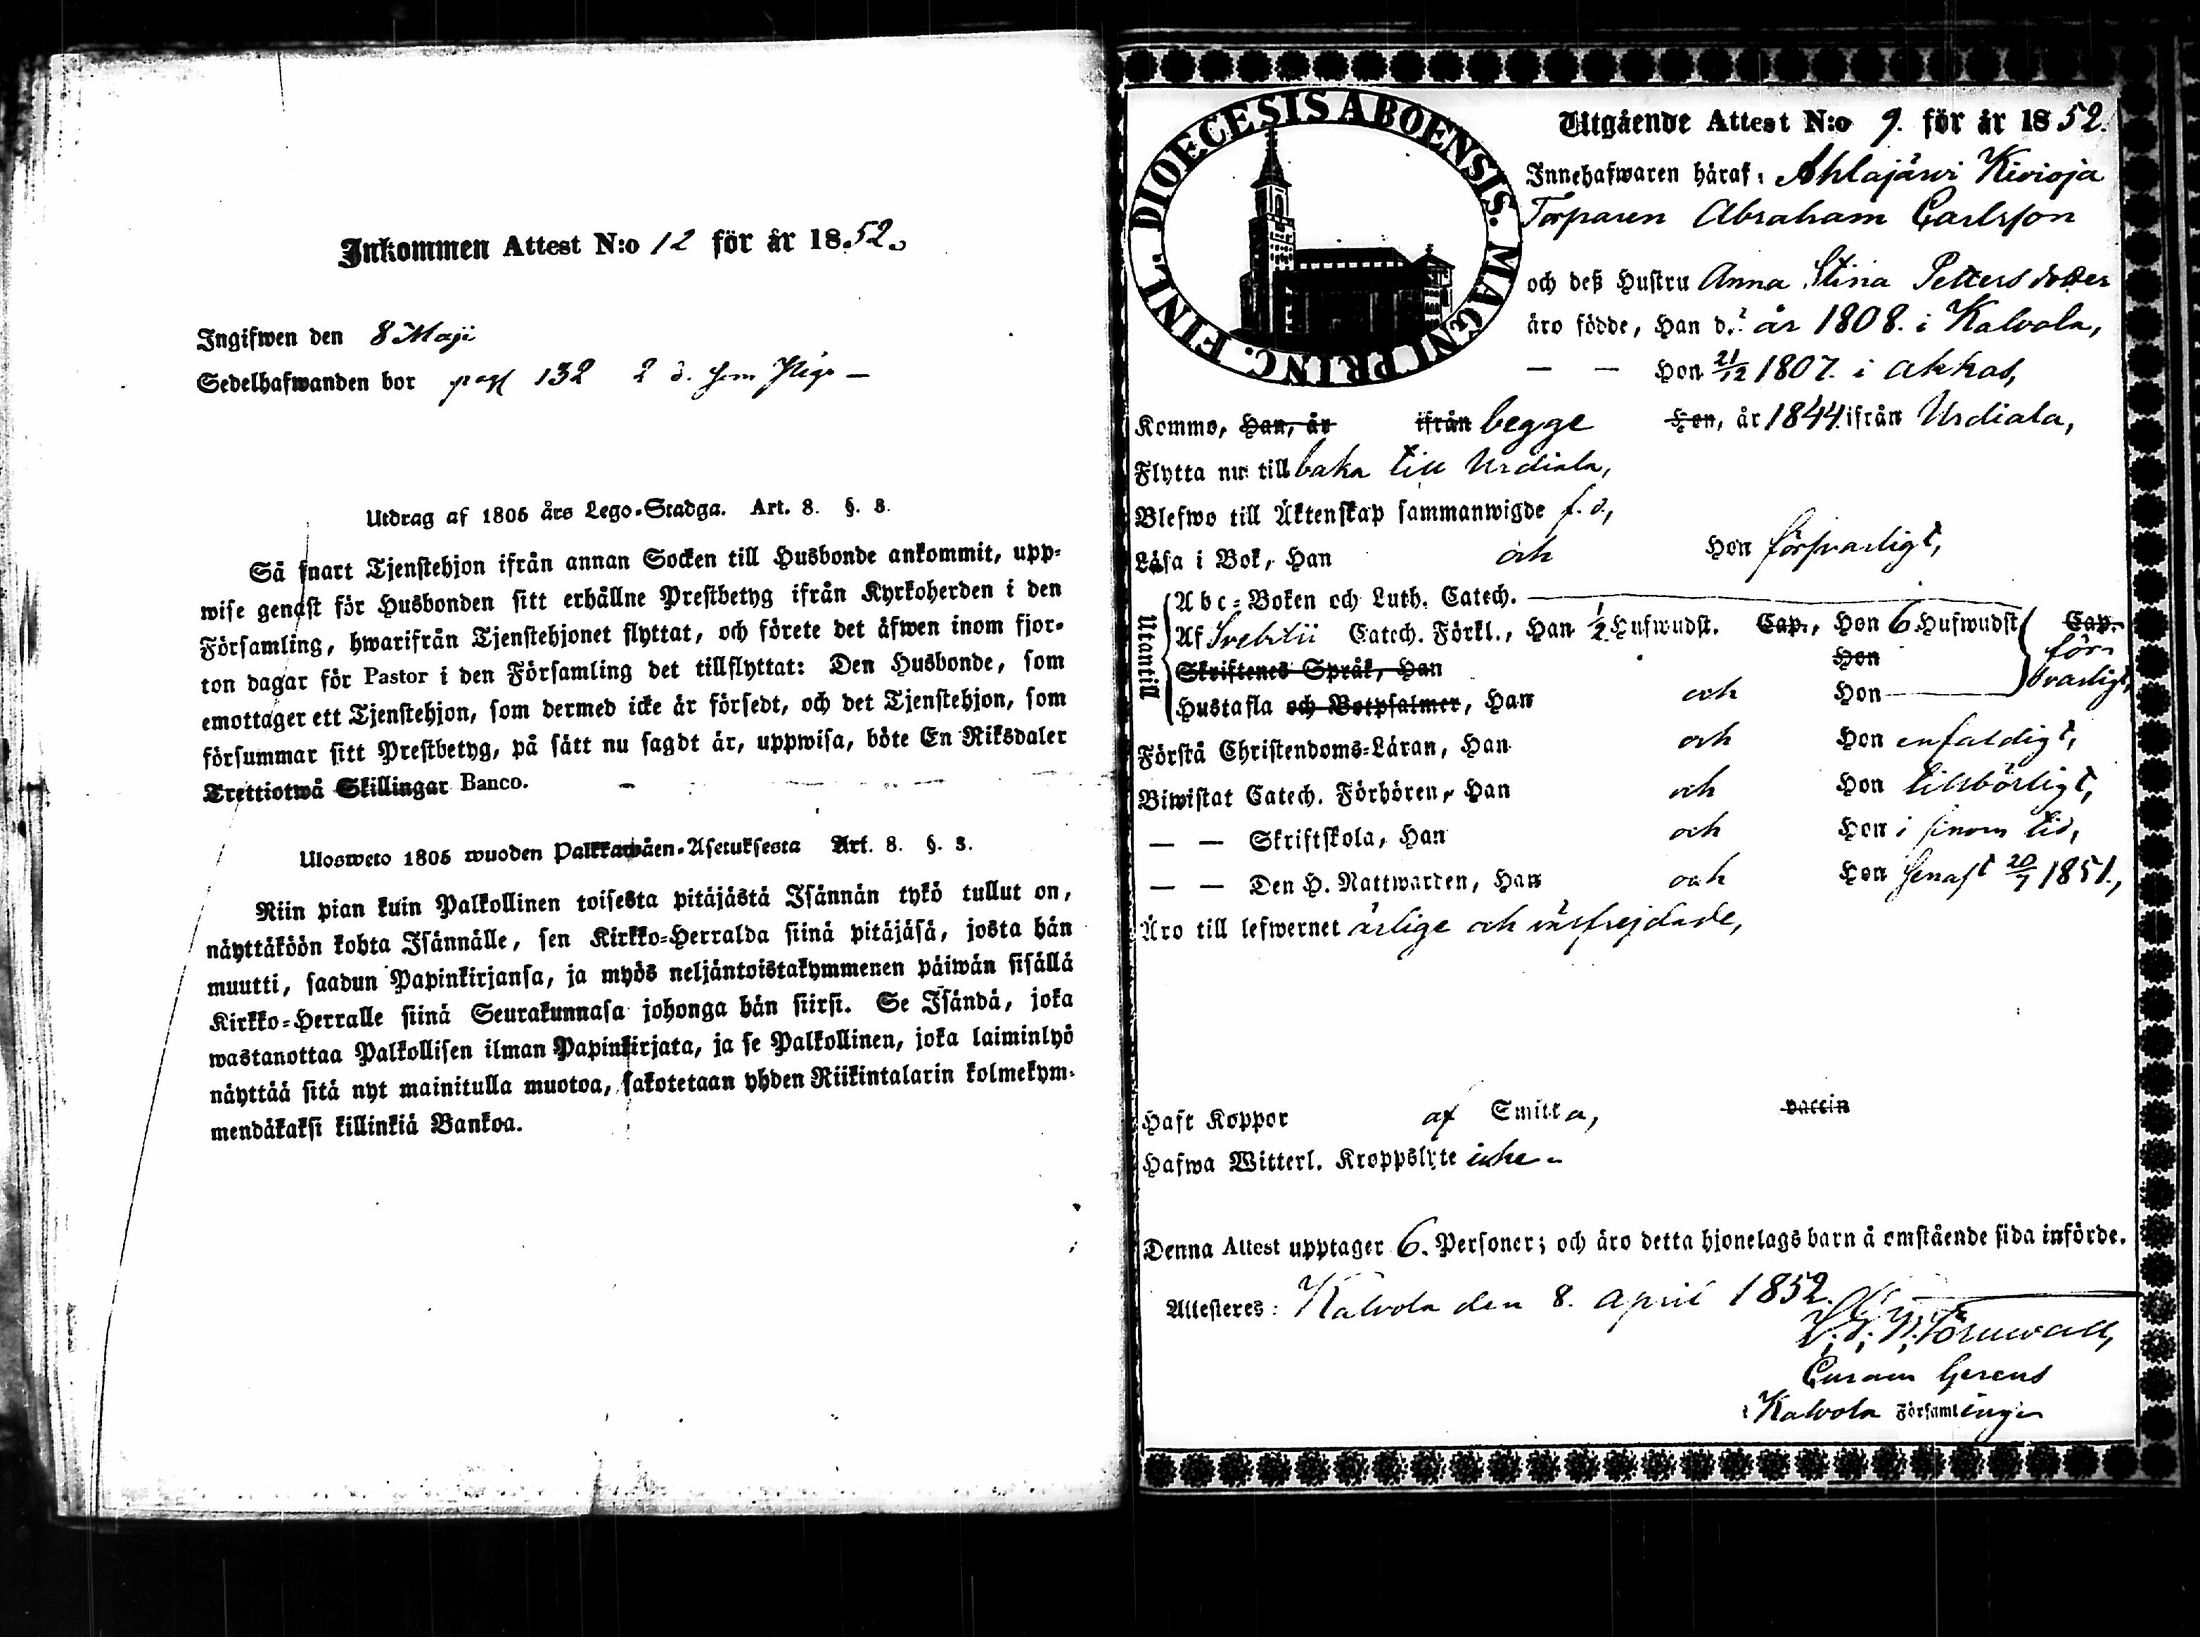 Inkommen Attest N:o 12 för år 1852.
Ingifwen den 8 Maji
Sedelhafwanden bor pag 132
Utdrag af 1805 års Lego-Stadga. Art. 8. §. 3.
Så snart Tjenstehjon ifrån annan Socken till Husbonde ankommit, upp-
wise genast för Husbonden sitt erhållne Prestbetyg ifrån Kyrkoherden i den
Församling, hwarifrån Tjenstehjonet flyttat, och förete det äfwen inom fjor-
ton dagar för Pastor i den Församling det tillflyttat: Den Husbonde, som
emottager ett Tjenstehjon, som dermed icke är försedt, och det Tjenstehjon, som
försummar sitt Prestbetyg, på sätt nu sagdt är, uppwisa, böte En Riksdaler
Trettiotwå Skillingar Banco.
Ulosweto 1805 wuoden Palkkawäen-Asetuksesta Art. 8. §. 3.
Niin pian kuin Palkollinen toisesta pitäjästä Isännän tykö tullut on,
näyttäköön kohta Isännälle, sen Kirkko-Herralda siinä pitäjäsä, josta hän
muutti, saadun Papinkirjansa, ja myös neljäntoistakymmenen päiwän sisällä
Kirkko-Herralle siinä Seurakunnasa johonga hän siirsi. Se Isändä, joka
wastanottaa Palkollisen ilman Papinkirjata, ja se Palkollinen, joka laiminlyö
näyttää sitä nyt mainitulla muotoa, sakotetaan yhden Riikintalarin kolmekym-
mendäkaksi killinkiä Bankoa.
DIOECESIS ABOENSIS. MAGNI PRINC. FINL.
Utgående Attest N:o 9. för år 1852.
Innehafwaren häraf: Ahlajärvi Kivioja
Torparen Abraham Carlsson
och deß Hustru Anna Stina Petters dotter
äro födde, Han d. ? år 1808. i Kalvola,
— — Hon 21/12 1807. i Akkas,
Komme, Han, år ifrån begge Hon, år 1844 ifrån Urdiala,
Flytta nu till baka till Urdiala,
Blefwo till Äktenskap sammanwigde f. d.,
Läsa i Bok, Han och Hon försvarligt,
Utantill
Abc-Boken och Luth. Catech.
Af Svebilii Catech. Förkl., Han 1/2 Hufwudst. Cap., Hon 6 Hufwudst. Cap.
Skriftenes Språk, Han Hon för-
svarligt,
Hustafla och Botpsalmer, Han och Hon
Förstå Christendoms-Läran, Han och Hon enfaldigt,
Biwistat Catech. Förhören, Han och Hon tillbörligt,
— — Skriftskola, Han och Hon i sinom tid,
— — Den H. Nattwarden, Han och Hon senast 20/7 1851.,
Äro till lefwernet ärlige och välfrejdade,
Haft Koppor af Smitta, vaccin
Hafwa Witterl. Kroppslyte icke.
Denna Attest upptager 6. Personer; och äro detta hjonelags barn å omstående sida införde.
Attesteres: Kalvola den 8. April 1852.
Törnwall,
Curam Gerens
i Kalvola Församlinge